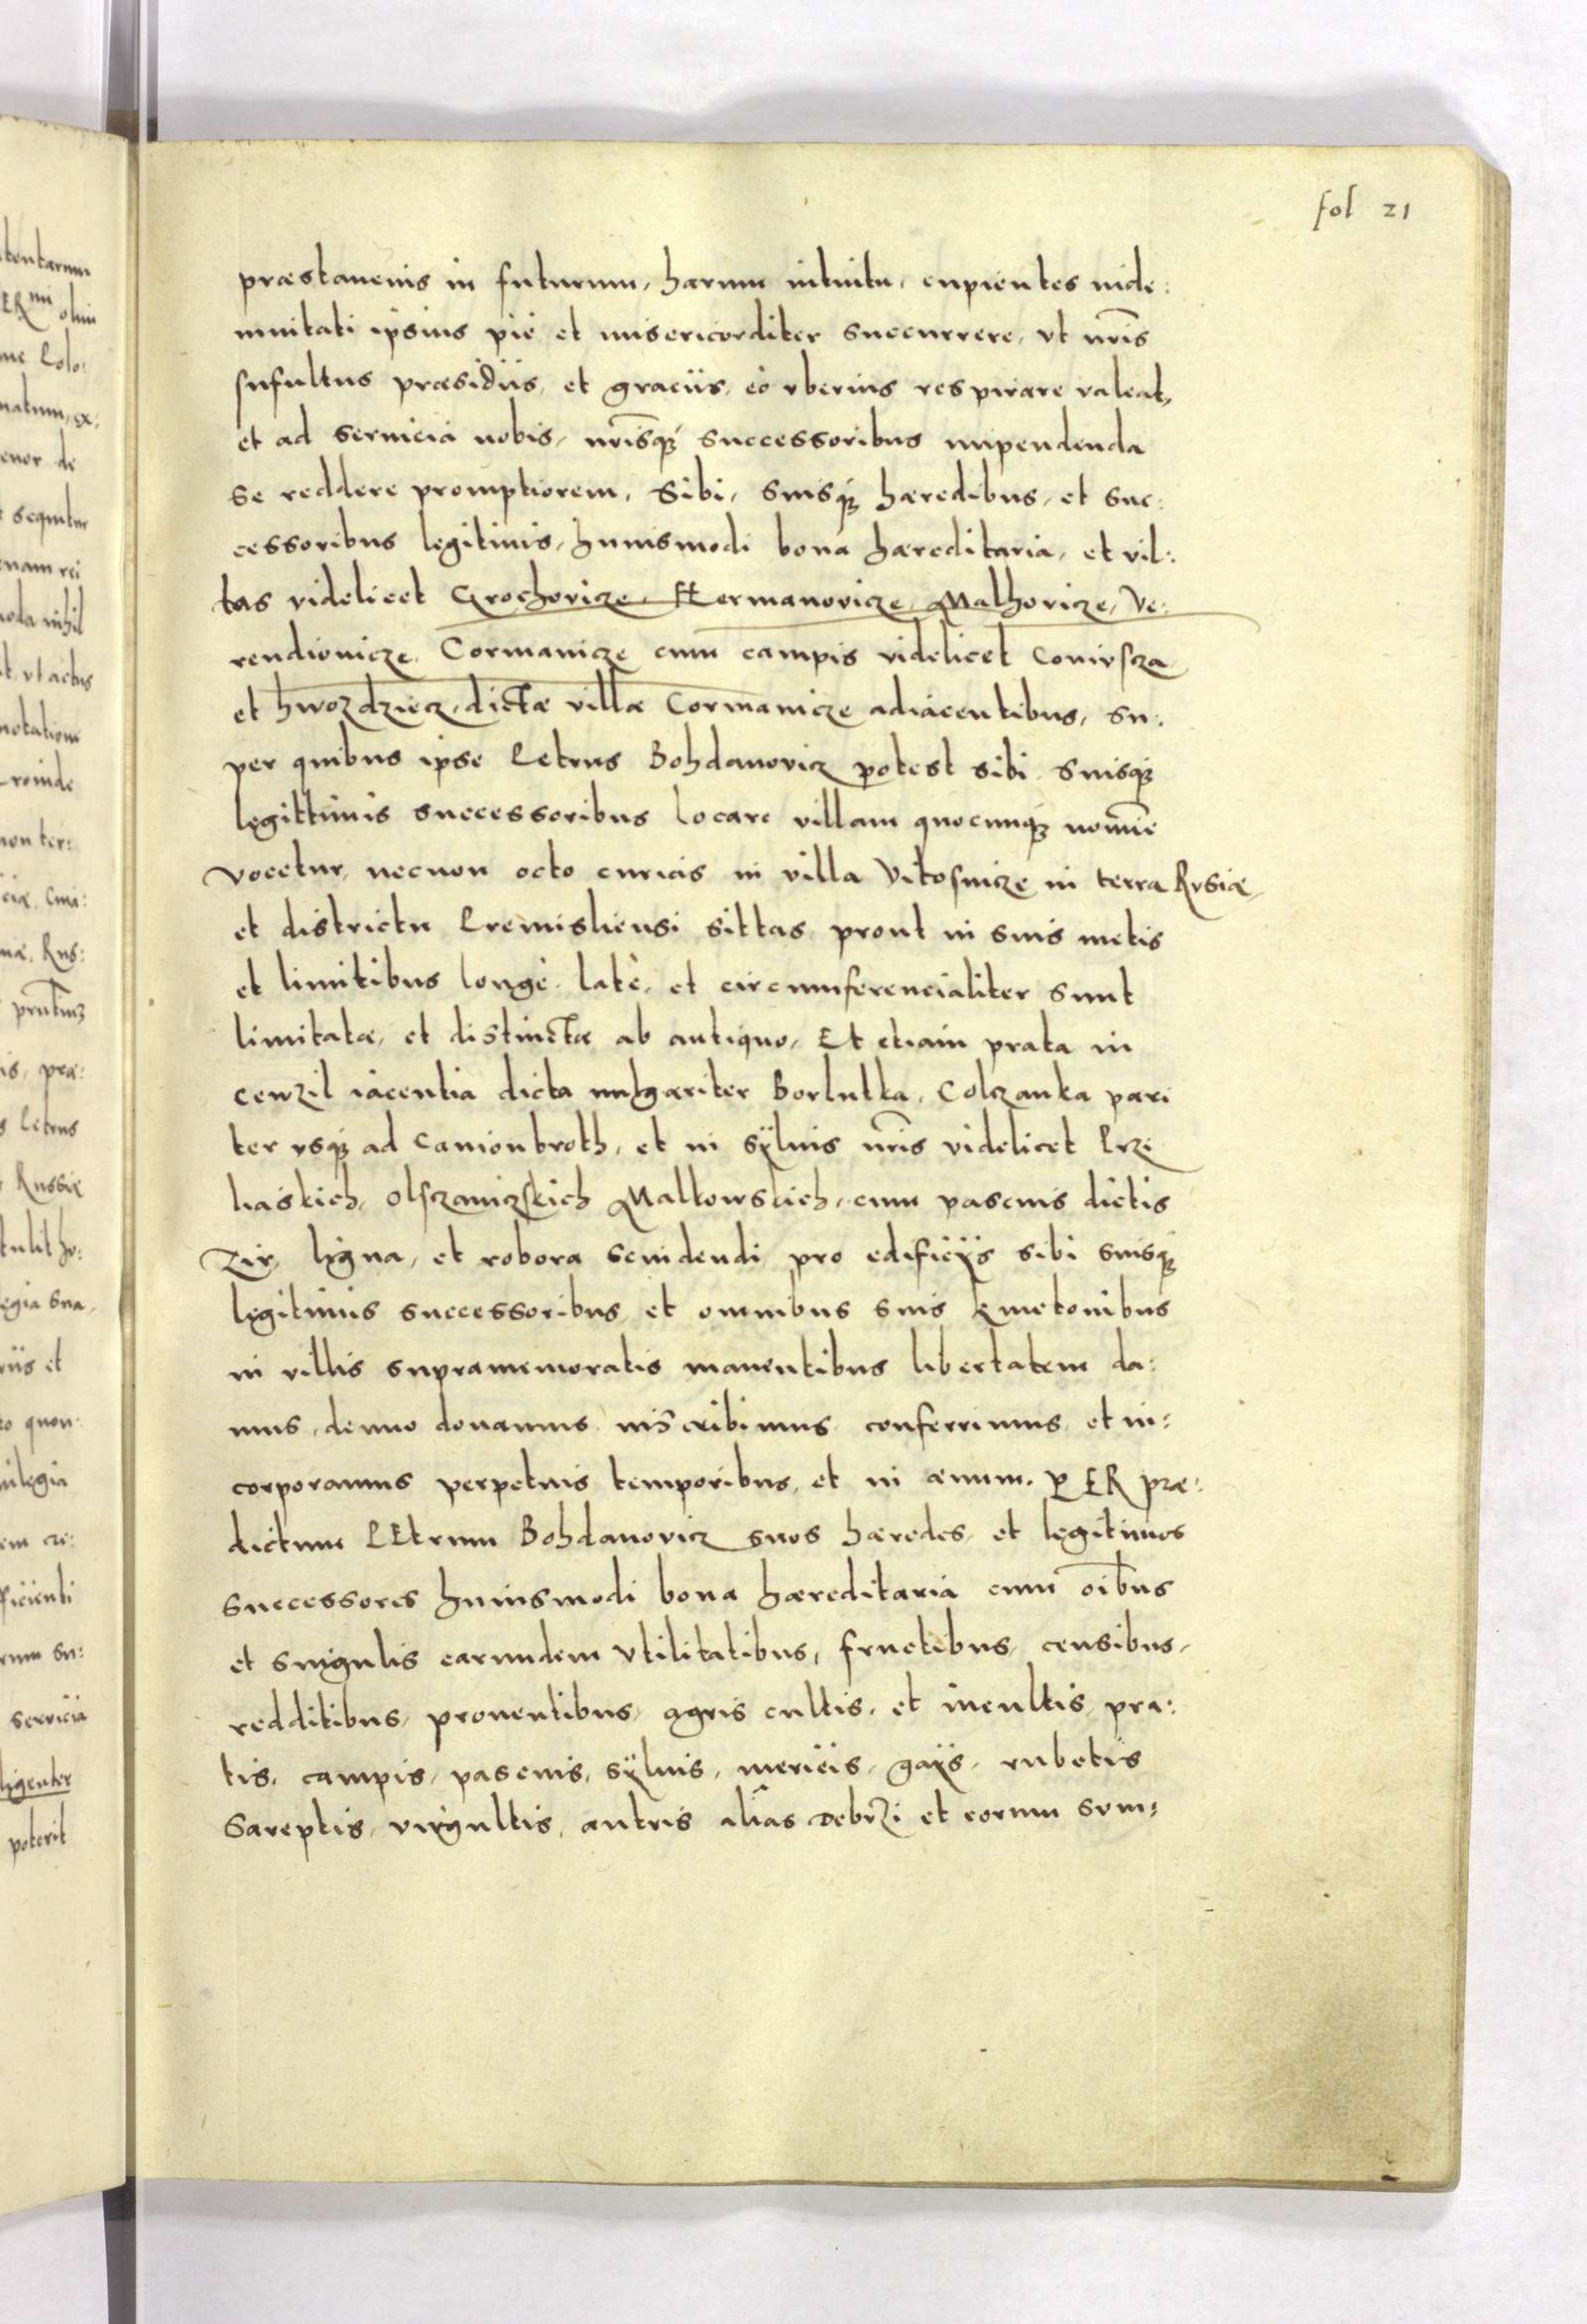 fol 21
præstaueris in futurum, harum intuitu, cupientes inde:
mnitati ipsius pie et misericorditer succurrere, vt nr̃is
suffultus præsidiis, et graciis, eò vberius respirare valeat,
et ad seruicia nobis, nr̃isq; successoribus impendenda
se reddere promptiorem, Sibi, suisq; hæredibus, et suc:
cessoribus legitimis, huiusmodi bona hæreditaria, et vil:
las videlicet Grochovicze, Hermanovicze, Malhovicze, Ve:
rendiouicze, Cormanicze cum campis videlicet Conivscza
et hwozdziecz, dictæ villæ Cormanicze adiacentibus, su:
per quibus ipse Petrus Bohdanovicz potest sibi suisq;
legittimis successoribus locare villam quocunq; nomine
vocetur, necnon octo curiis in villa Vitosnicze in terra Rvsiæ,
et districtu Premisliensi sittas, prout in suis metis
et limitibus longè, latè, et circumferencialiter sunt
limitatæ, et distinctæ ab antiquo, Et etiam prata in
cenzil iacentia dicta uulgariter Borlulka, Colczanka pari
ter vsq; ad Camionbroth, et in sÿluis nr̃is videlicet Prze
kaskich, Olsczaniczskich Malkowskich, cum pascuis dictis
Zir, ligna, et robora scindendi pro edificÿs sibi suisq;
legitimis successoribus, et omnibus suis kmetonibus
in villis supramemoratis manentibus libertatem da:
mus, denuo donamus, inscribimus, conferrimus, et in:
corporamus perpetuis temporibus, et in æuum. PER præ:
dictum PEtrum Bohdanovicz suos hæredes, et legitimos
successores huiusmodi bona hæreditaria cum oĩbus
et singulis earundem vtilitatibus, fructibus, censibus,
redditibus, prouentibus, agris cultis, et incultis, pra:
tis, campis, pascuis, sÿluis, mericis, gaÿs, rubetis
Sareptis, virgultis, antris aliàs debrzi et eorum svm: